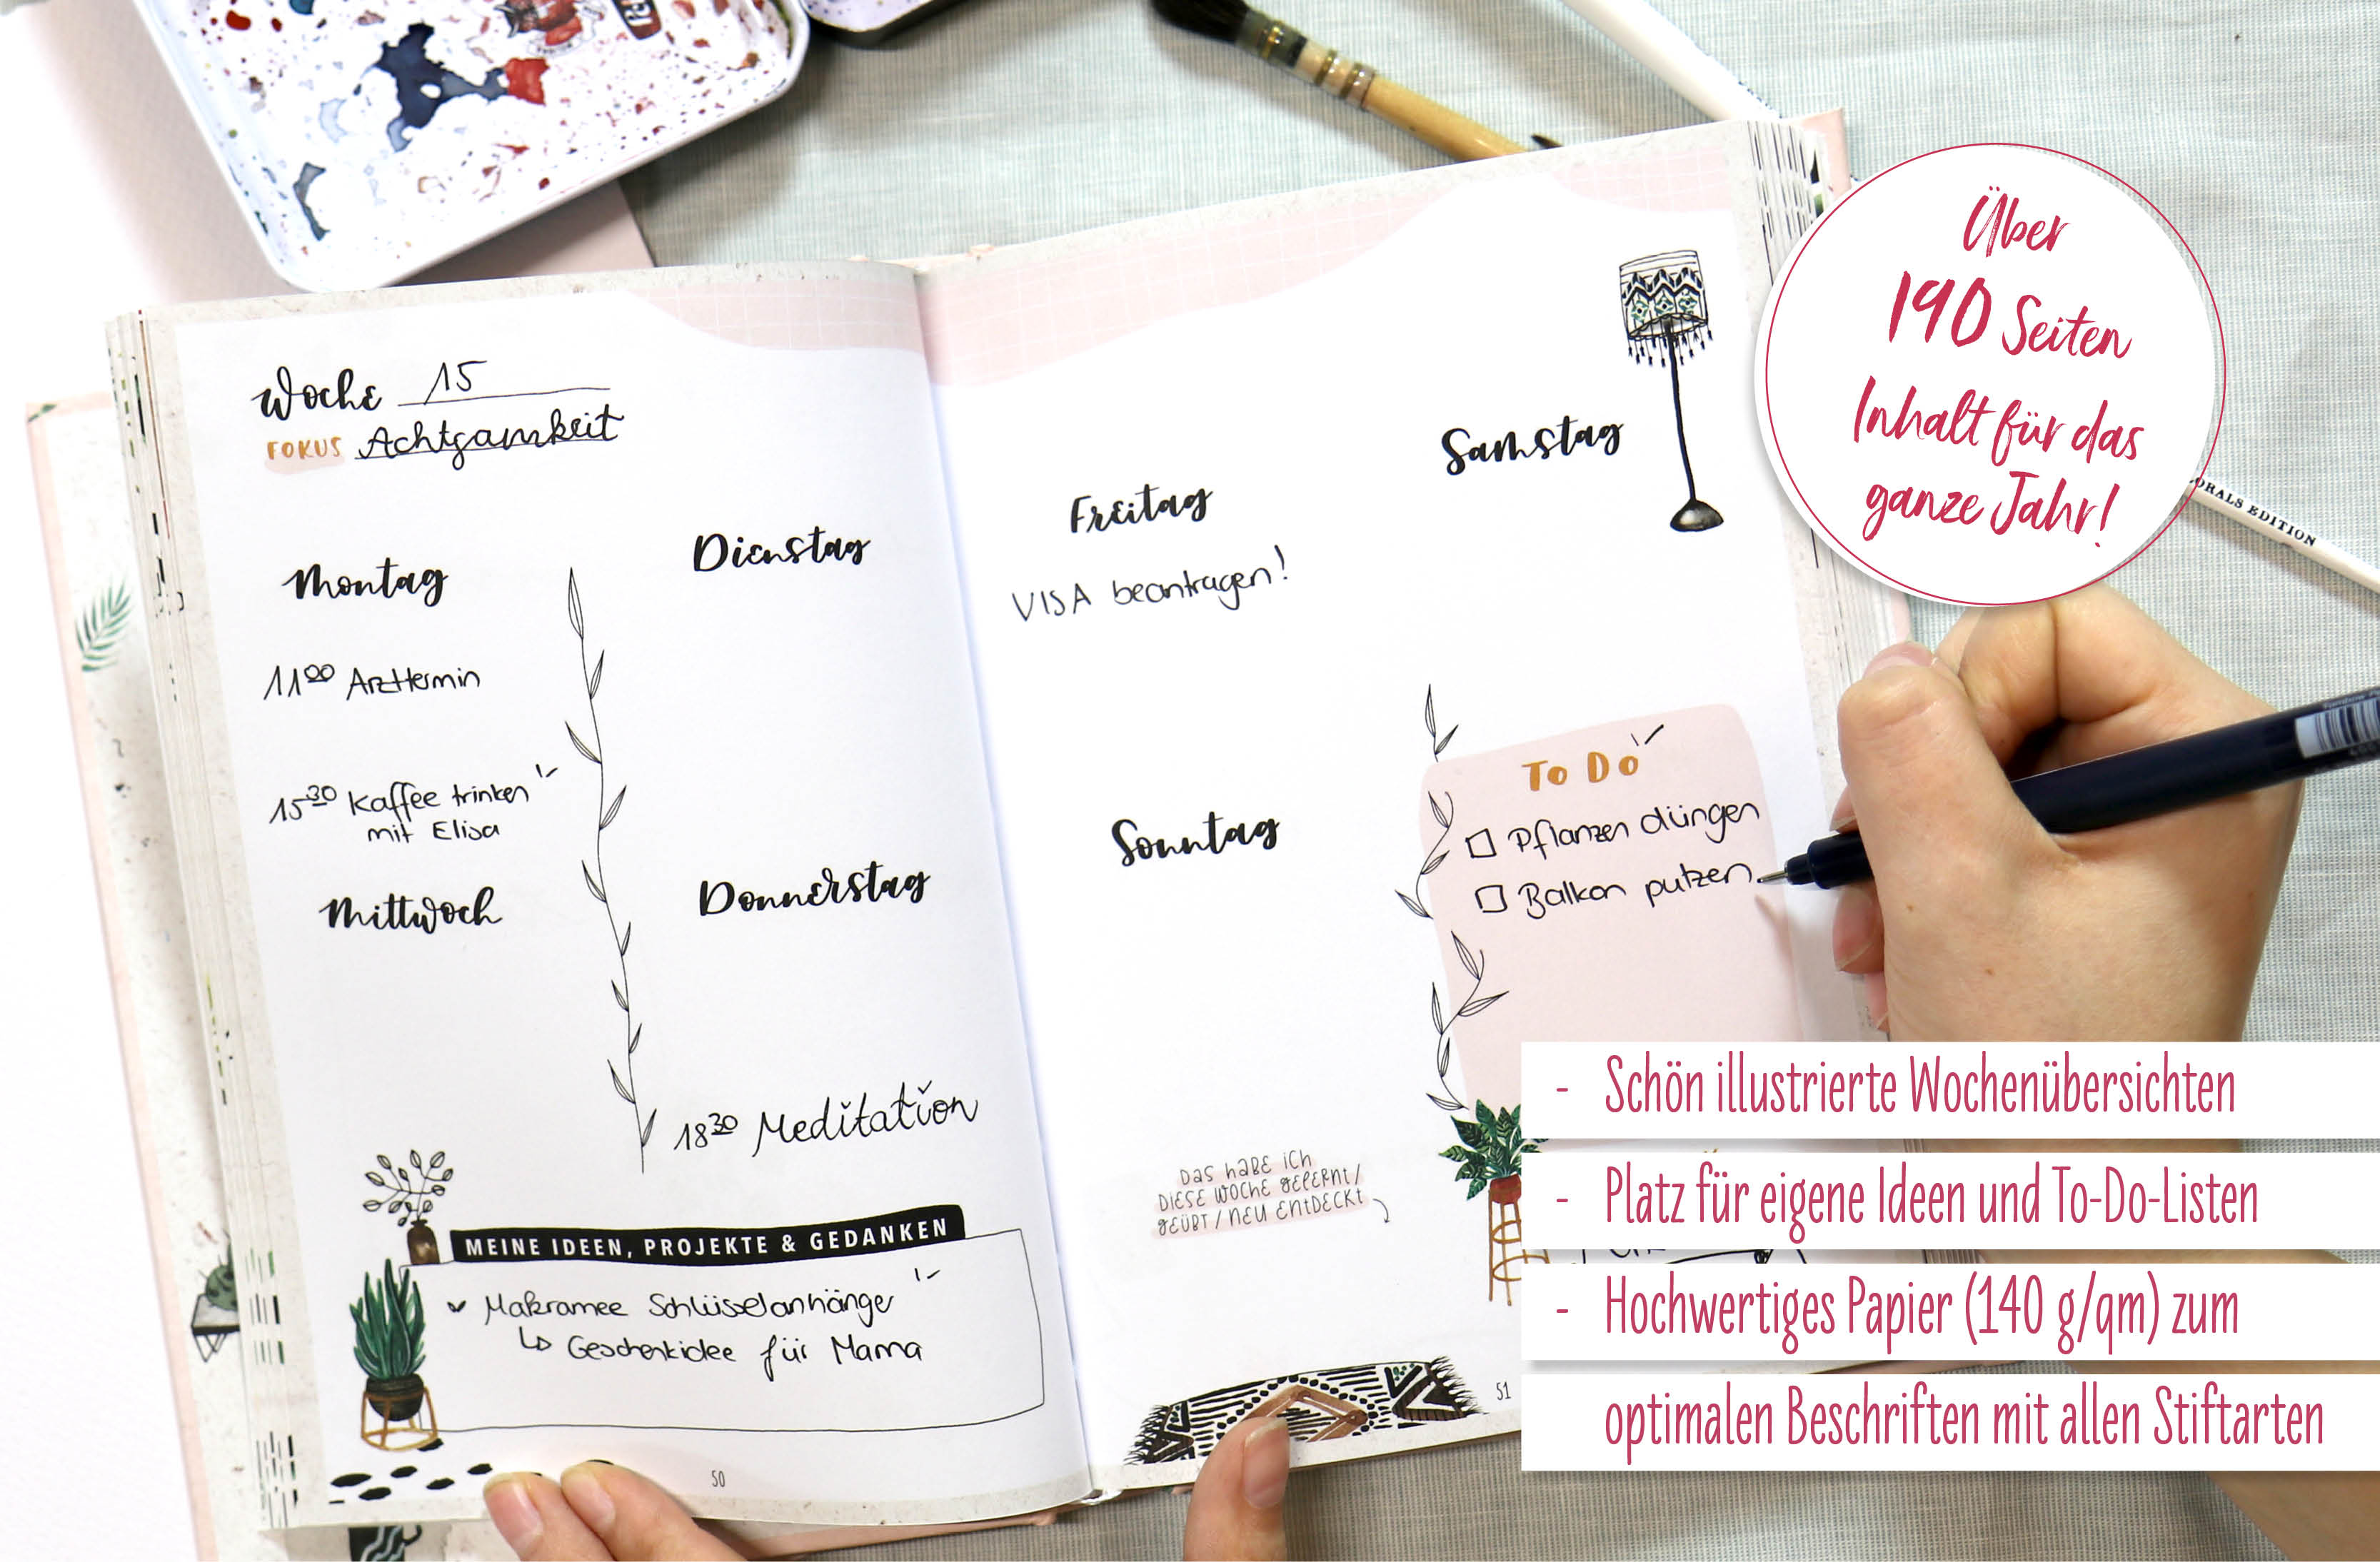 Woche 15
FOKUS Achtsamkeit
Montag
11 00 Arzttermin
15 30 Kaffee trinken
mit Elisa
Mittwoch
Dienstag
Donnerstag
18 30 Meditation
MEINE IDEEN, PROJEKTE & GEDANKEN
Makramee Schlüsselanhänger
↳ Geschenkidee für Mama
50
Freitag
VISA beantragen!
Samstag
Sonntag
To Do
Pflanzen düngen
Balkon putzen
Das habe ich
diese Woche gelernt/
geübt/neu entdeckt
51
Über
190 Seiten
Inhalt für das
ganze Jahr!
ORALS EDITION
- Schön illustrierte Wochenübersichten
- Platz für eigene Ideen und To-Do-Listen
- Hochwertiges Papier (140 g/qm) zum
optimalen Beschriften mit allen Stiftarten